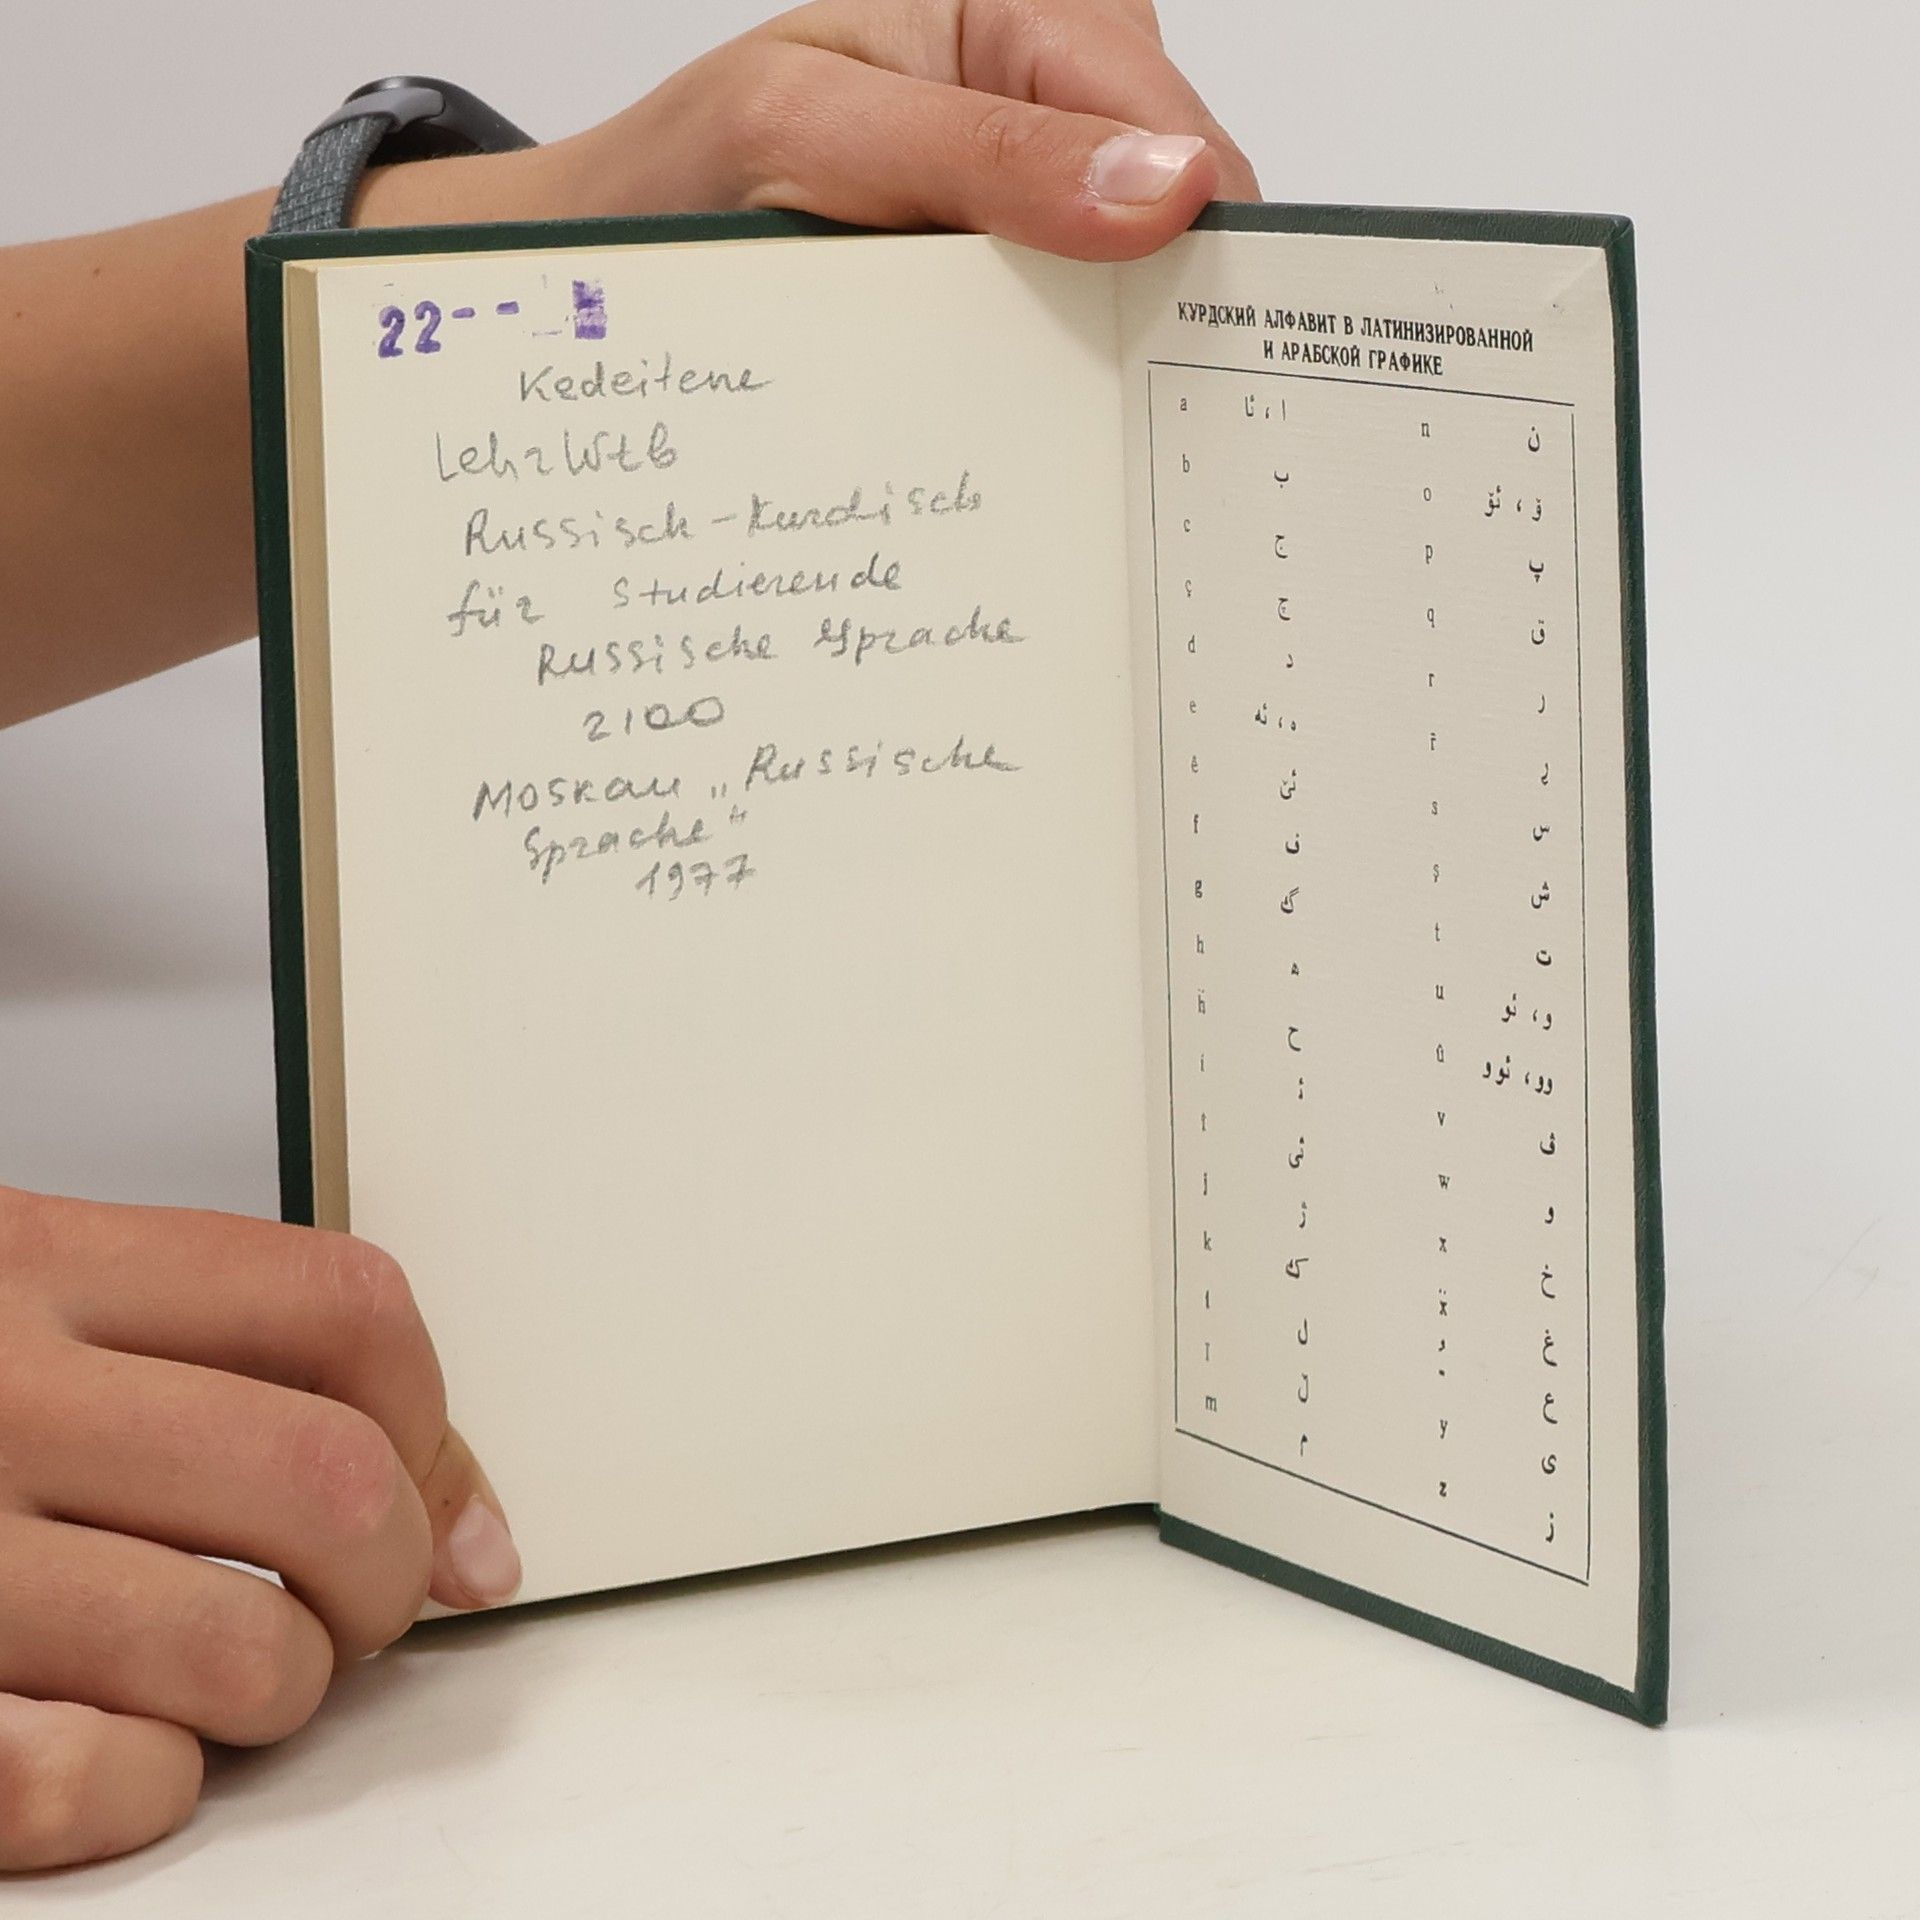 22--
Kedeitene
LehrWtb
Russisch-Kurdisch
für Studierende
Russische Sprache
2100
Moskau „Russische
Sprache"
1977
КУРДСКИЙ АЛФАВИТ В ЛАТИНИЗИРОВАННОЙ
И АРАБСКОЙ ГРАФИКЕ
a ا، ئا
b ب
c ج
ç چ
d د
e ە، ئە
ê ئێ
f ف
g گ
h ھ
ḧ ح
i ئ
î ئی
j ژ
k ک
l ل
m م
n ن
o ۆ، ئۆ
p پ
q ق
r ر
r̄ ڕ
s س
ş ش
t ت
u و، ئو
û وو، ئوو
v ڤ
w و
x خ
ẍ غ
ع
y ی
z ز